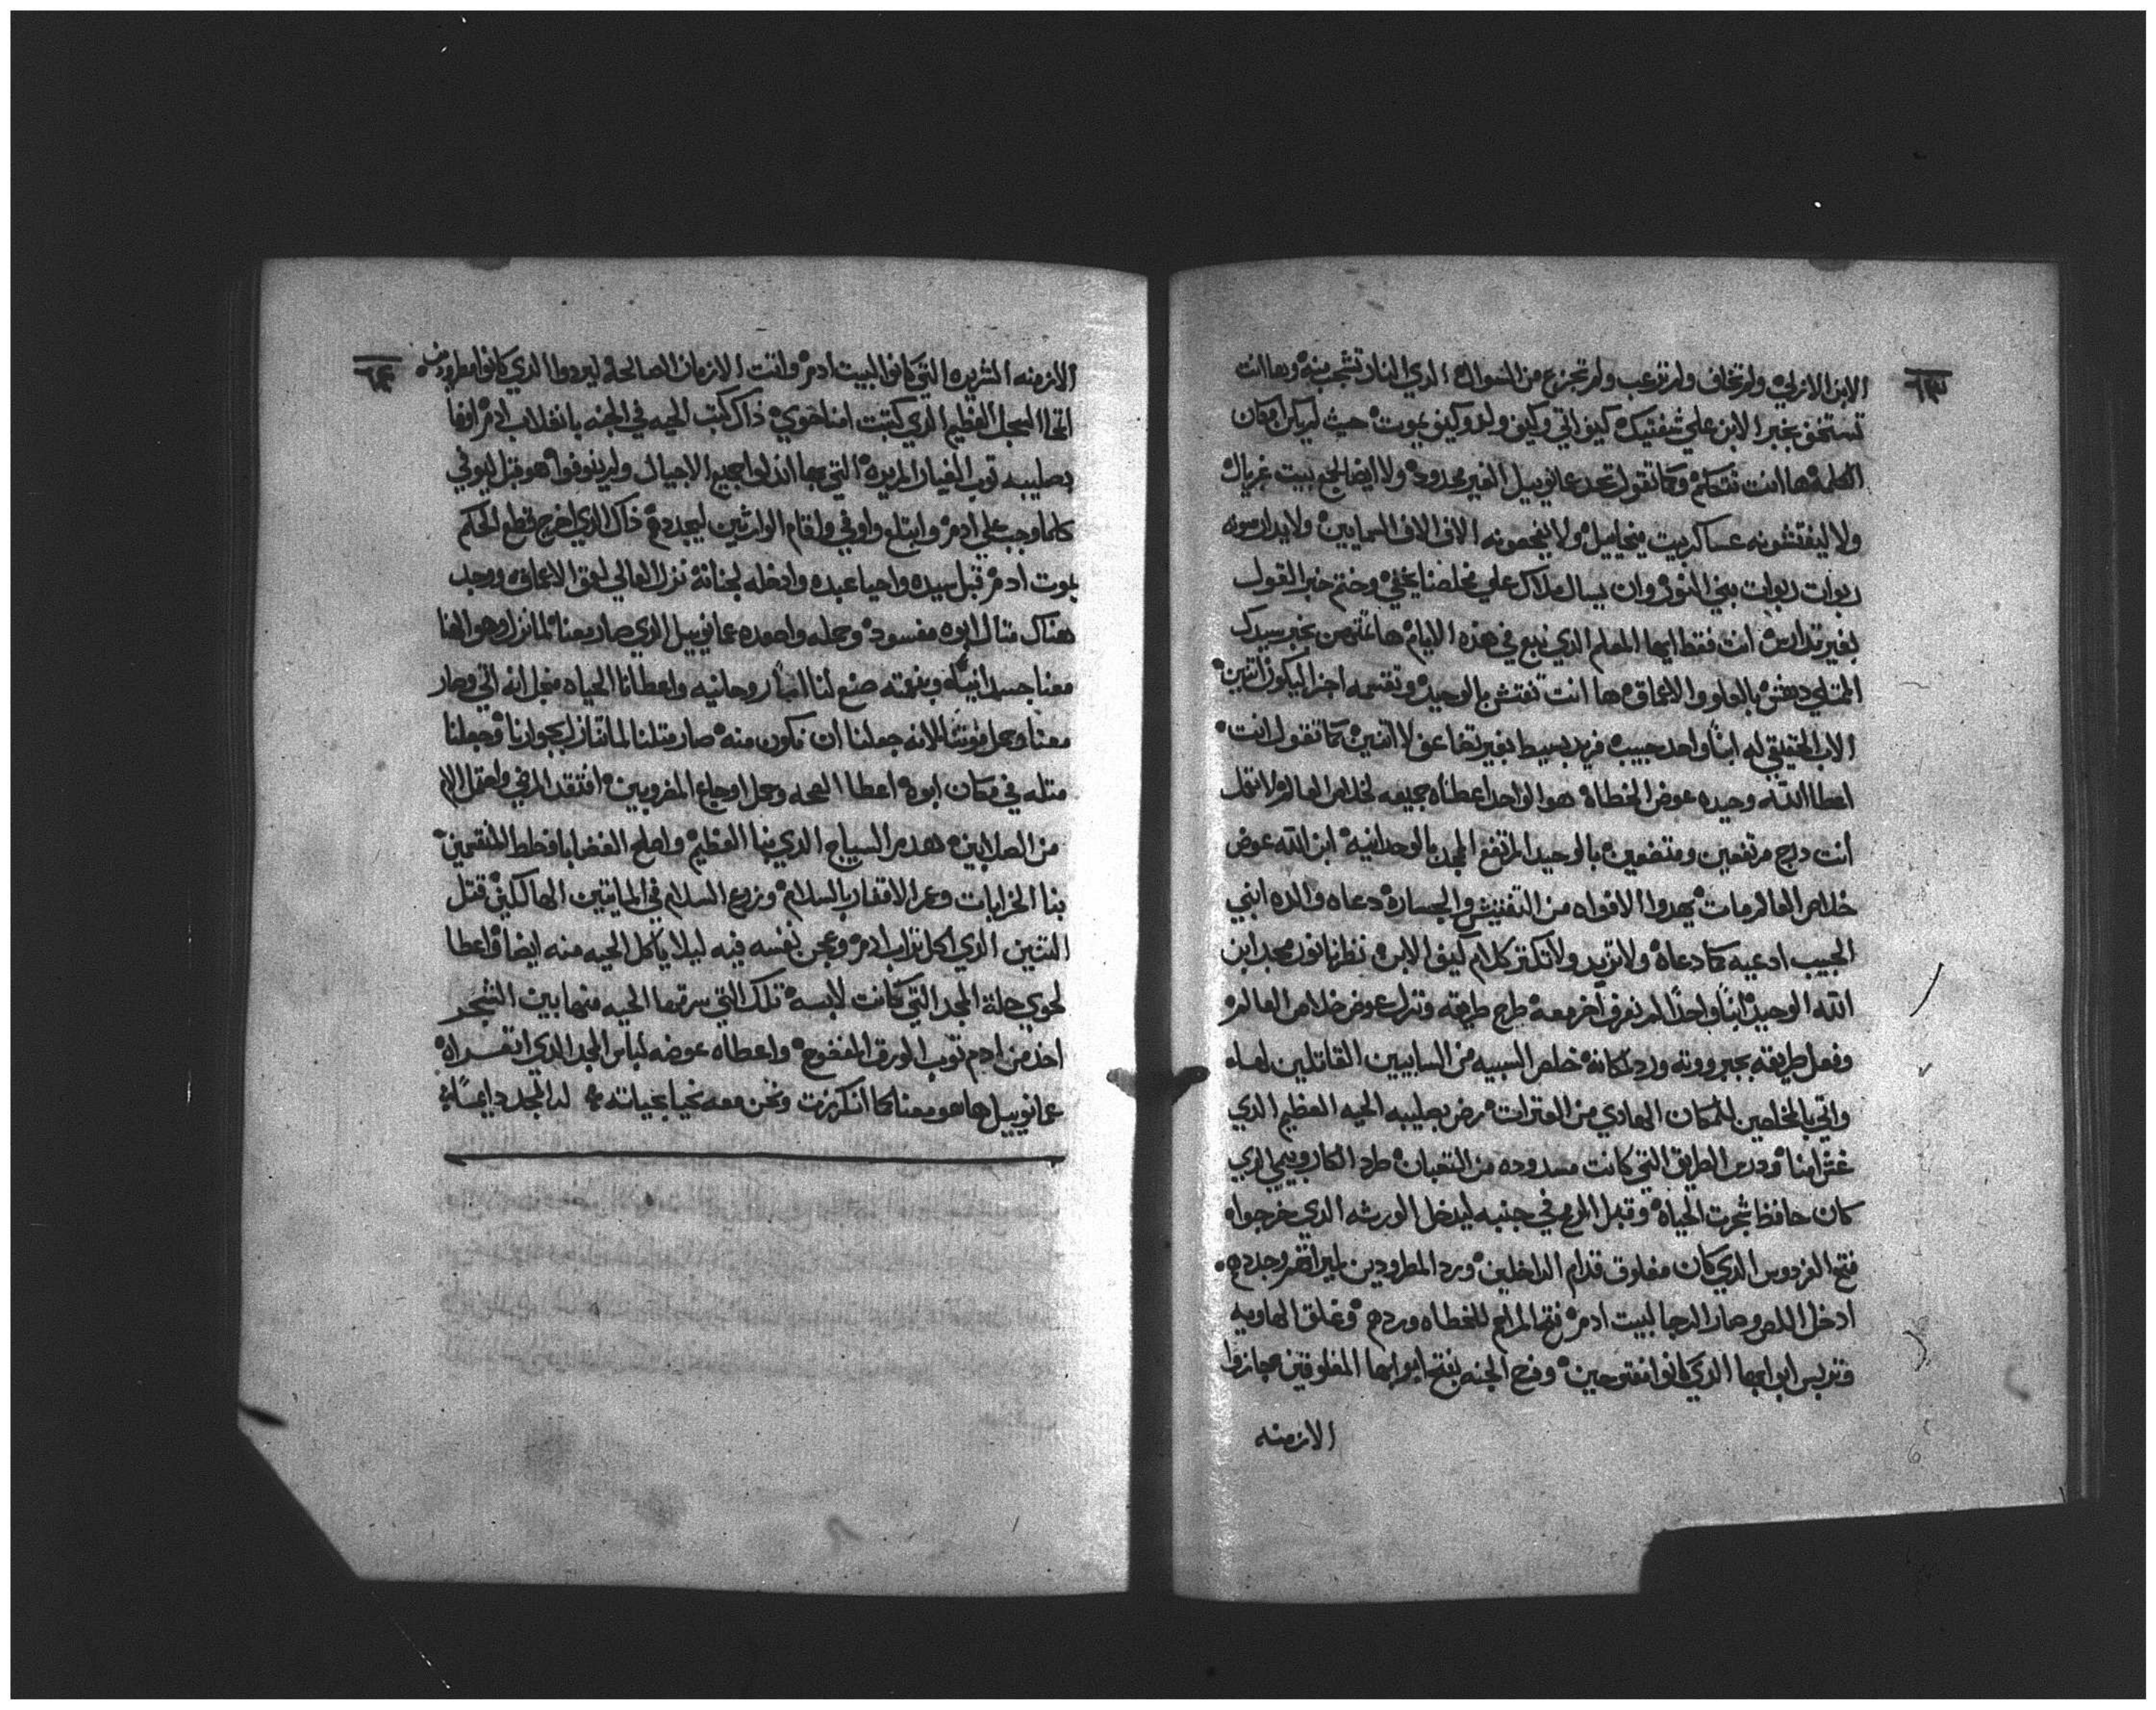 ٦٣
الابن الازلي ولم تخاف ولم ترعب ولم تجزع من السوال الذي النار تشجب منه وها انت
تستخف بخبر الابن علي شفتيك كيف اتي وكيف ولد وكيف يموت حيث لم يكن امكان
الكلمة ها انت تتكلم وكما تقول تحد عمانوييل الغير محدود ولا ايضا لجمع بيت غريال
ولا ليفتشونه عساكر بيت ميخاييل ولا يفحصونه الاف الاف السمايين ولا يدارسونه
ربوات ربوات بني النور وان يسال ملاك علي مخلصنا يخفي وختم خبر القول
بغير تدارس انت فقط ايها المعلم الذي نبع في هذه الايام ها تفحص بخبر سيدك
الممتلي دهش بالعلو والاعماق ها انت تفتش بالوحيد وتقسمه اجزا ليكون اتنين
الاب الحقيقي له ابناً واحد حبيبه فريد بسيط بغير تضاعف لا اتنين كما تقول انت
اعطا الله وحيده عوض الخطاه هو الواحد اعطاه جميعه لخلاص العالم ولا تقل
انت درج مرتفعين ومتضعين بالوحيد المرتفع الممجد بالوحدانية ابن الله عوض
خلاص العالم مات يهدوا الافواه من التفتيش والجساره دعاه والده ابني
الحبيب ادعيه كما دعاه ولا تزيد ولا تكتر كلام كيف الابن نظرنا نور مجد ابن
الله الوحيد ابناً واحداً لم نعرف اخر معه طرح طريقه ونزل عوض خلاص العالم
وفعل طريقه بجبروته ورد لمكانه خلص السبيه من السابيين القاتلين لهاه
واتي بالمخلصين للمكان الهادي من العترات رض بصليبه الحيه العظيم الذي
غش امنا ودرس الطريق التي كانت مسدوده من التعبان طرد الكاروبيمي الذي
كان حافظ شجرت الحياه وقبل الرمح في جنبه ليدخل الورثه الذي خرجوا
فتح الفردوس الذي كان مغلوق قدام الداخلين ورد المطرودين لميراتهم وجددهم
ادخل اللص وصار الرجا لبيت ادم فتح المراحم للخطاه وردهم وغلق الهاويه
وتدبس ابوابها الذي كانوا مفتوحين وفرح الجنه بفتح ابوابها المغلوقين جازوا
الازمنه
٦٤
الازمنه الشريره التي كانوا لبيت ادم واتت الازمان الصالحة ليردوا الذي كانوا مطرودين
اتحا السجل العظيم الذي كتبت امنا حوي ذاك كتب الحيه في الجنه بانقلاب ادم اوفا
بصليبه توب الغيار المريره التي بها اندلوا جميع الاجيال ولم ينوفوا هو قبل ليوفي
كلما وجب علي ادم وابتلع واوفي واقام الوارثين ليجددهم ذاك الذي اخرج قطع الحكم
بموت ادم قبل سيده واحيا عبده وادخله لجنانه نزل العالي لعمق الاعماق ووجد
هناك متال ابوه مفسود وحمله واصعده عمانوييل الذي صار معنا لما نزل وهو الهنا
معنا جسدانياً وبنعمته صنع لنا ابناً روحانيه واعطانا الحياه من اجل انه اتي وصار
معنا وحمل موتنا لانه جعلنا ان نكون منه صار متلنا لما تنازل بجوارنا وجعلنا
متله في مكان ابوه اعطا الصحه وحمل اوجاع المضروبين افتقد المرضي واحتمل الالام
من الصلابين هدم السياج الذي بينا العظيم واصلح الغضابا وخلط المنقسمين
بنا الخرابات وعمر الاقفار بالسلام وزرع السلام في المايتين الهالكين قتل
التنين الذي اكل تراب ادم وعجن نفسه فيه ليلا ياكل الحيه منه ايضاً واعطا
لحوي حلة المجد التي كانت لابسه تلك التي سرقها الحيه منها بين الشجر
اخذ من ادم توب الورق المفضوح واعطاه عوضه لباس المجد الذي اتعراه
عمانوييل ها هو معنا كما انكرزت ونحن معه نحيا بحياته له المجد دايماً